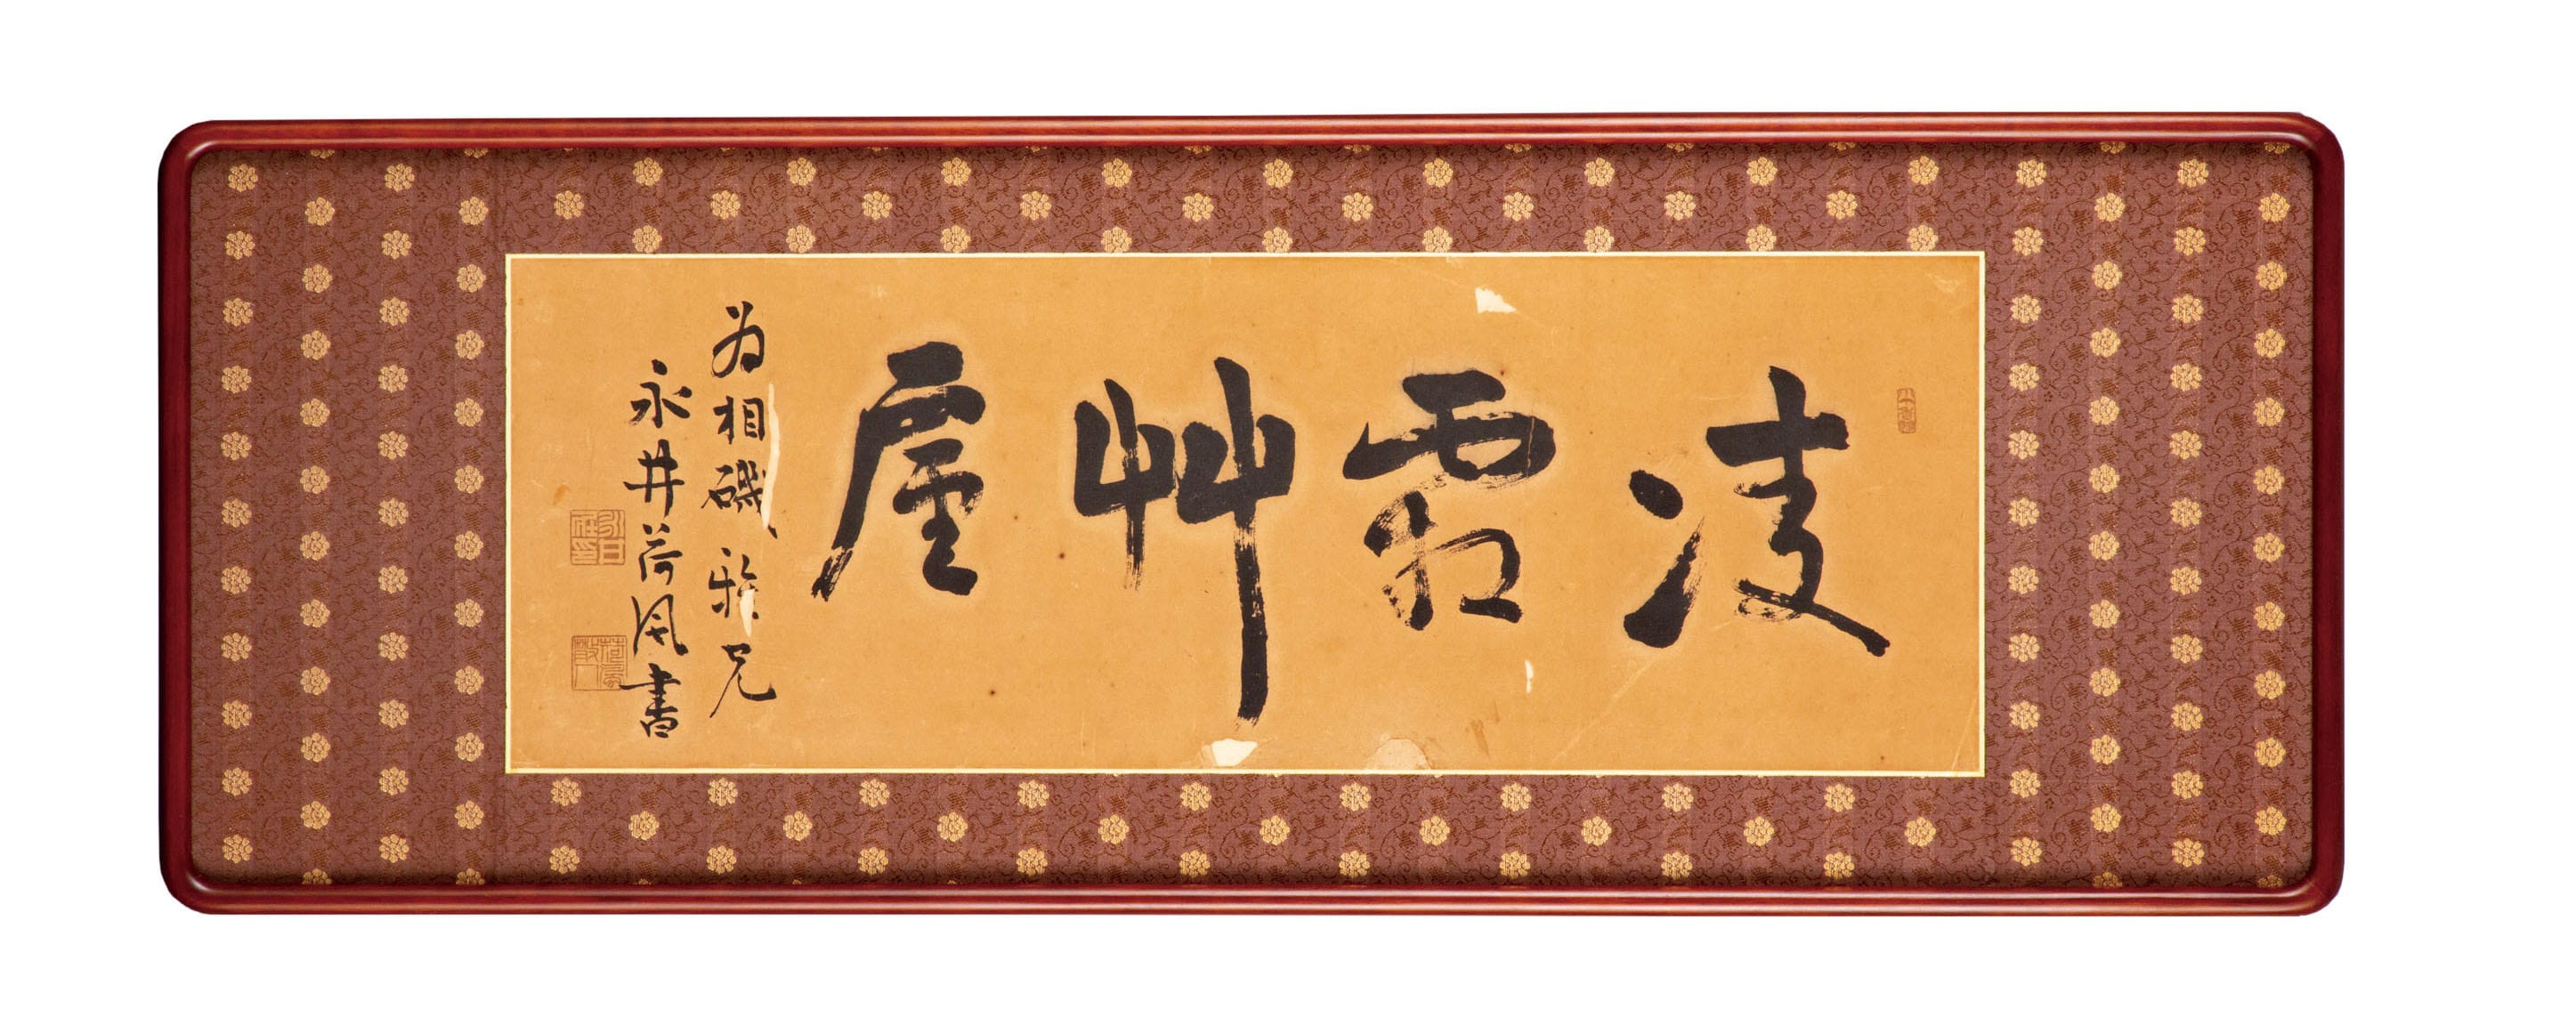 凌霜艸廬
为相磯雅兄
永井荷風書